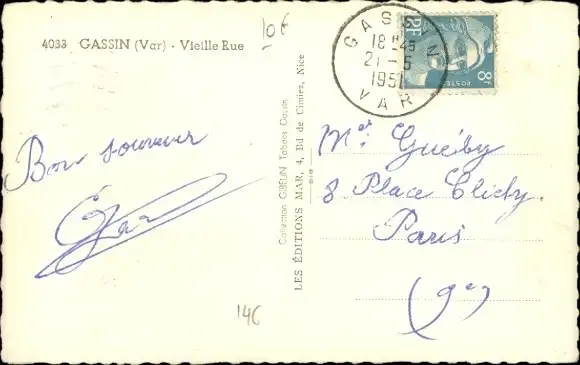 10€
4033 GASSIN (Var) - Vieille Rue
GASSIN
18H45
21-5
1951
VAR
8F
POSTES
Bon souvenir
Collection GIBELIN Tabacs Gassin
LES ÉDITIONS MAR, 4, Bd de Cimiez, Nice
8 Place Clichy.
Paris
(9e)
14C